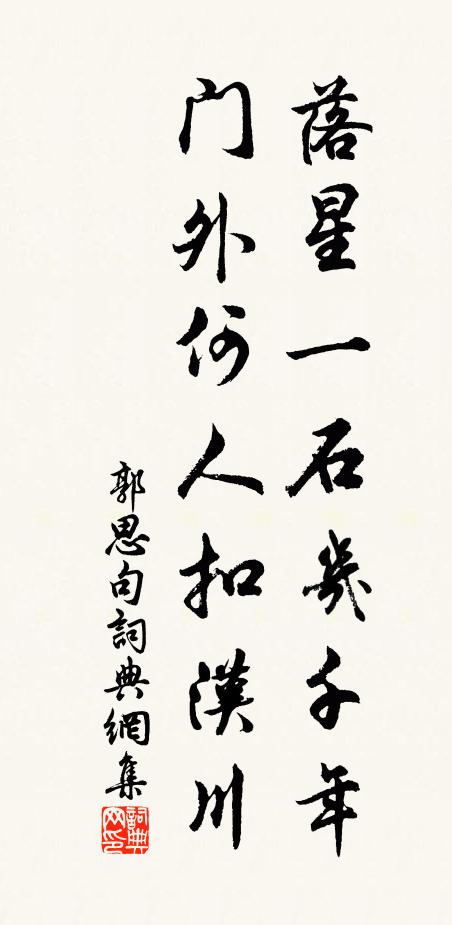 落星一石幾千年
门外何人扣漢川
郭思句詞典網集
詞典网印